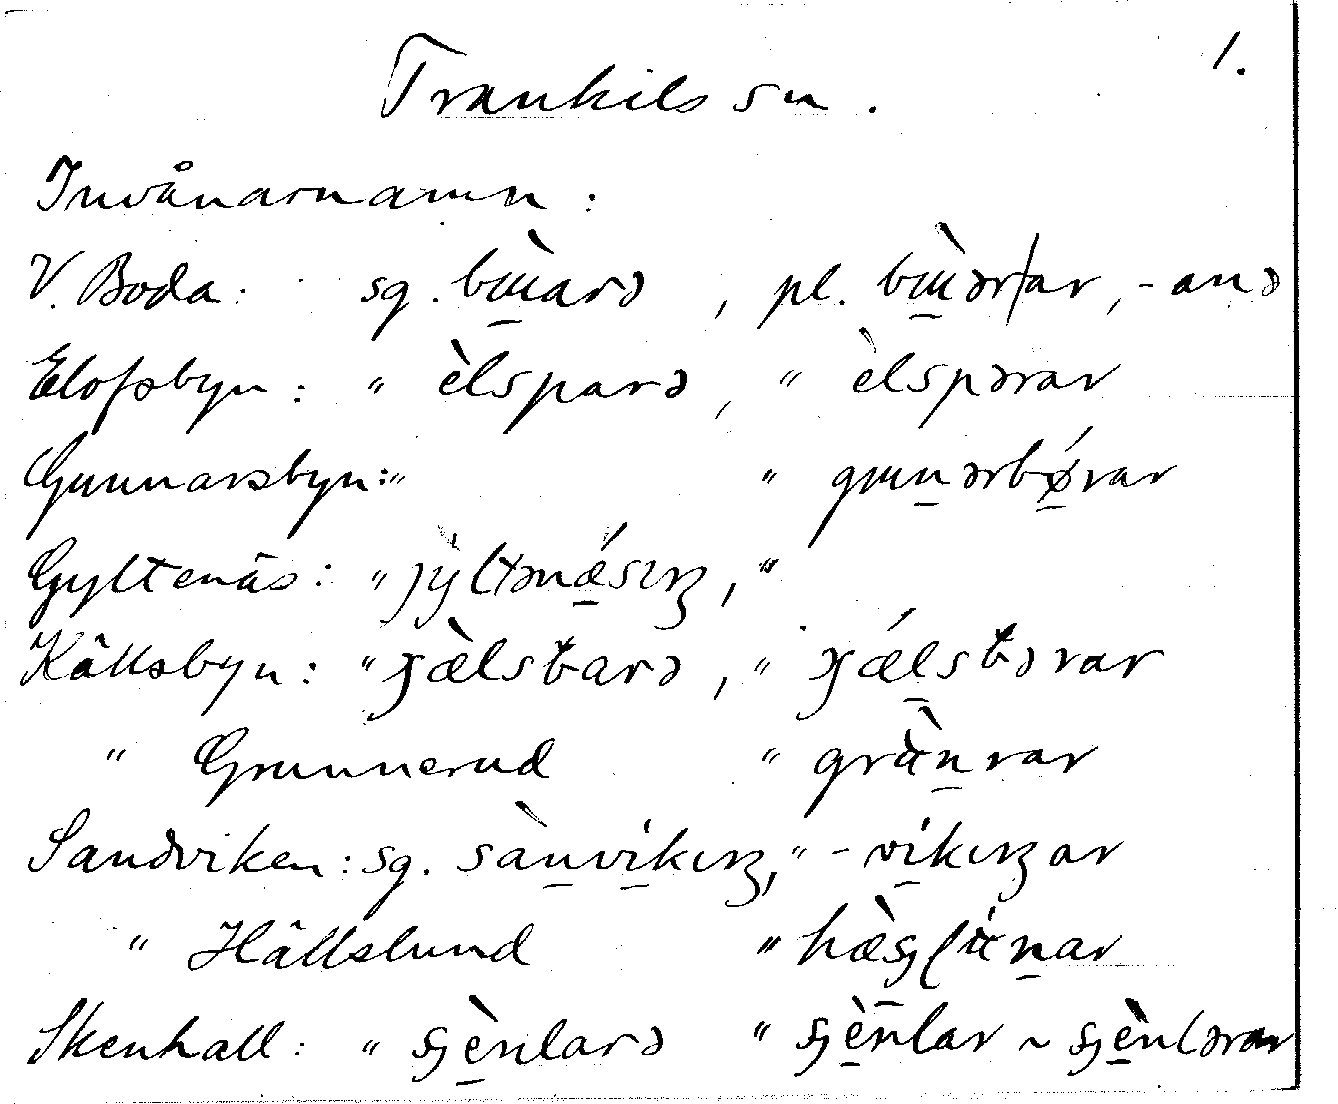 1.
Trankils sn.
Invånarnamn:
V. Boda: sg. bɯ̀arə, pl. bɯ̀ərar, -anə
Elofsbyn: " èlsparə, " èlspərar
Gunnarsbyn: " " gɯnərbǿrar
Gyltenäs: " jỳltənǽsıŋ, "
Källsbyn: " ɟæ̀lsbarə, " ɟǽlsbərar
" Grunnerud " grànrar
Sandviken: sg. sànvíkıŋ, " -víkıŋar
" Hällslund " hæ̀sʃlɯ́nar
Skenhall: " ʃènlarə " ʃènlar ~ ʃènlərar